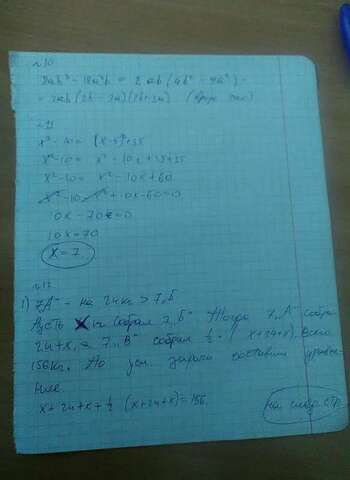 №10
8ab³ - 18a³b = 2ab(4b² - 9a²) =
= 2ab(2b - 3a)(2b+3a)
x² - 10 = (x-5)² + 35
x² - 10 = x² - 10x + 25 + 35
x² - 10 = x² - 10x + 60
x² - 10 - x² + 10x - 60 = 0
10x - 70 = 0
10x = 70
x = 7
1) 7„А" - на 24кг > 7„Б"
Пусть x кг собрал 7„Б" Тогда 7„А" собра
24+x, а 7„В" собрал ½ · (x+24+x). Всего
156кг. По усл. задачи составим уравне-
ние
x + 24 + x + ½ (x+24+x) = 156
на след. стр.